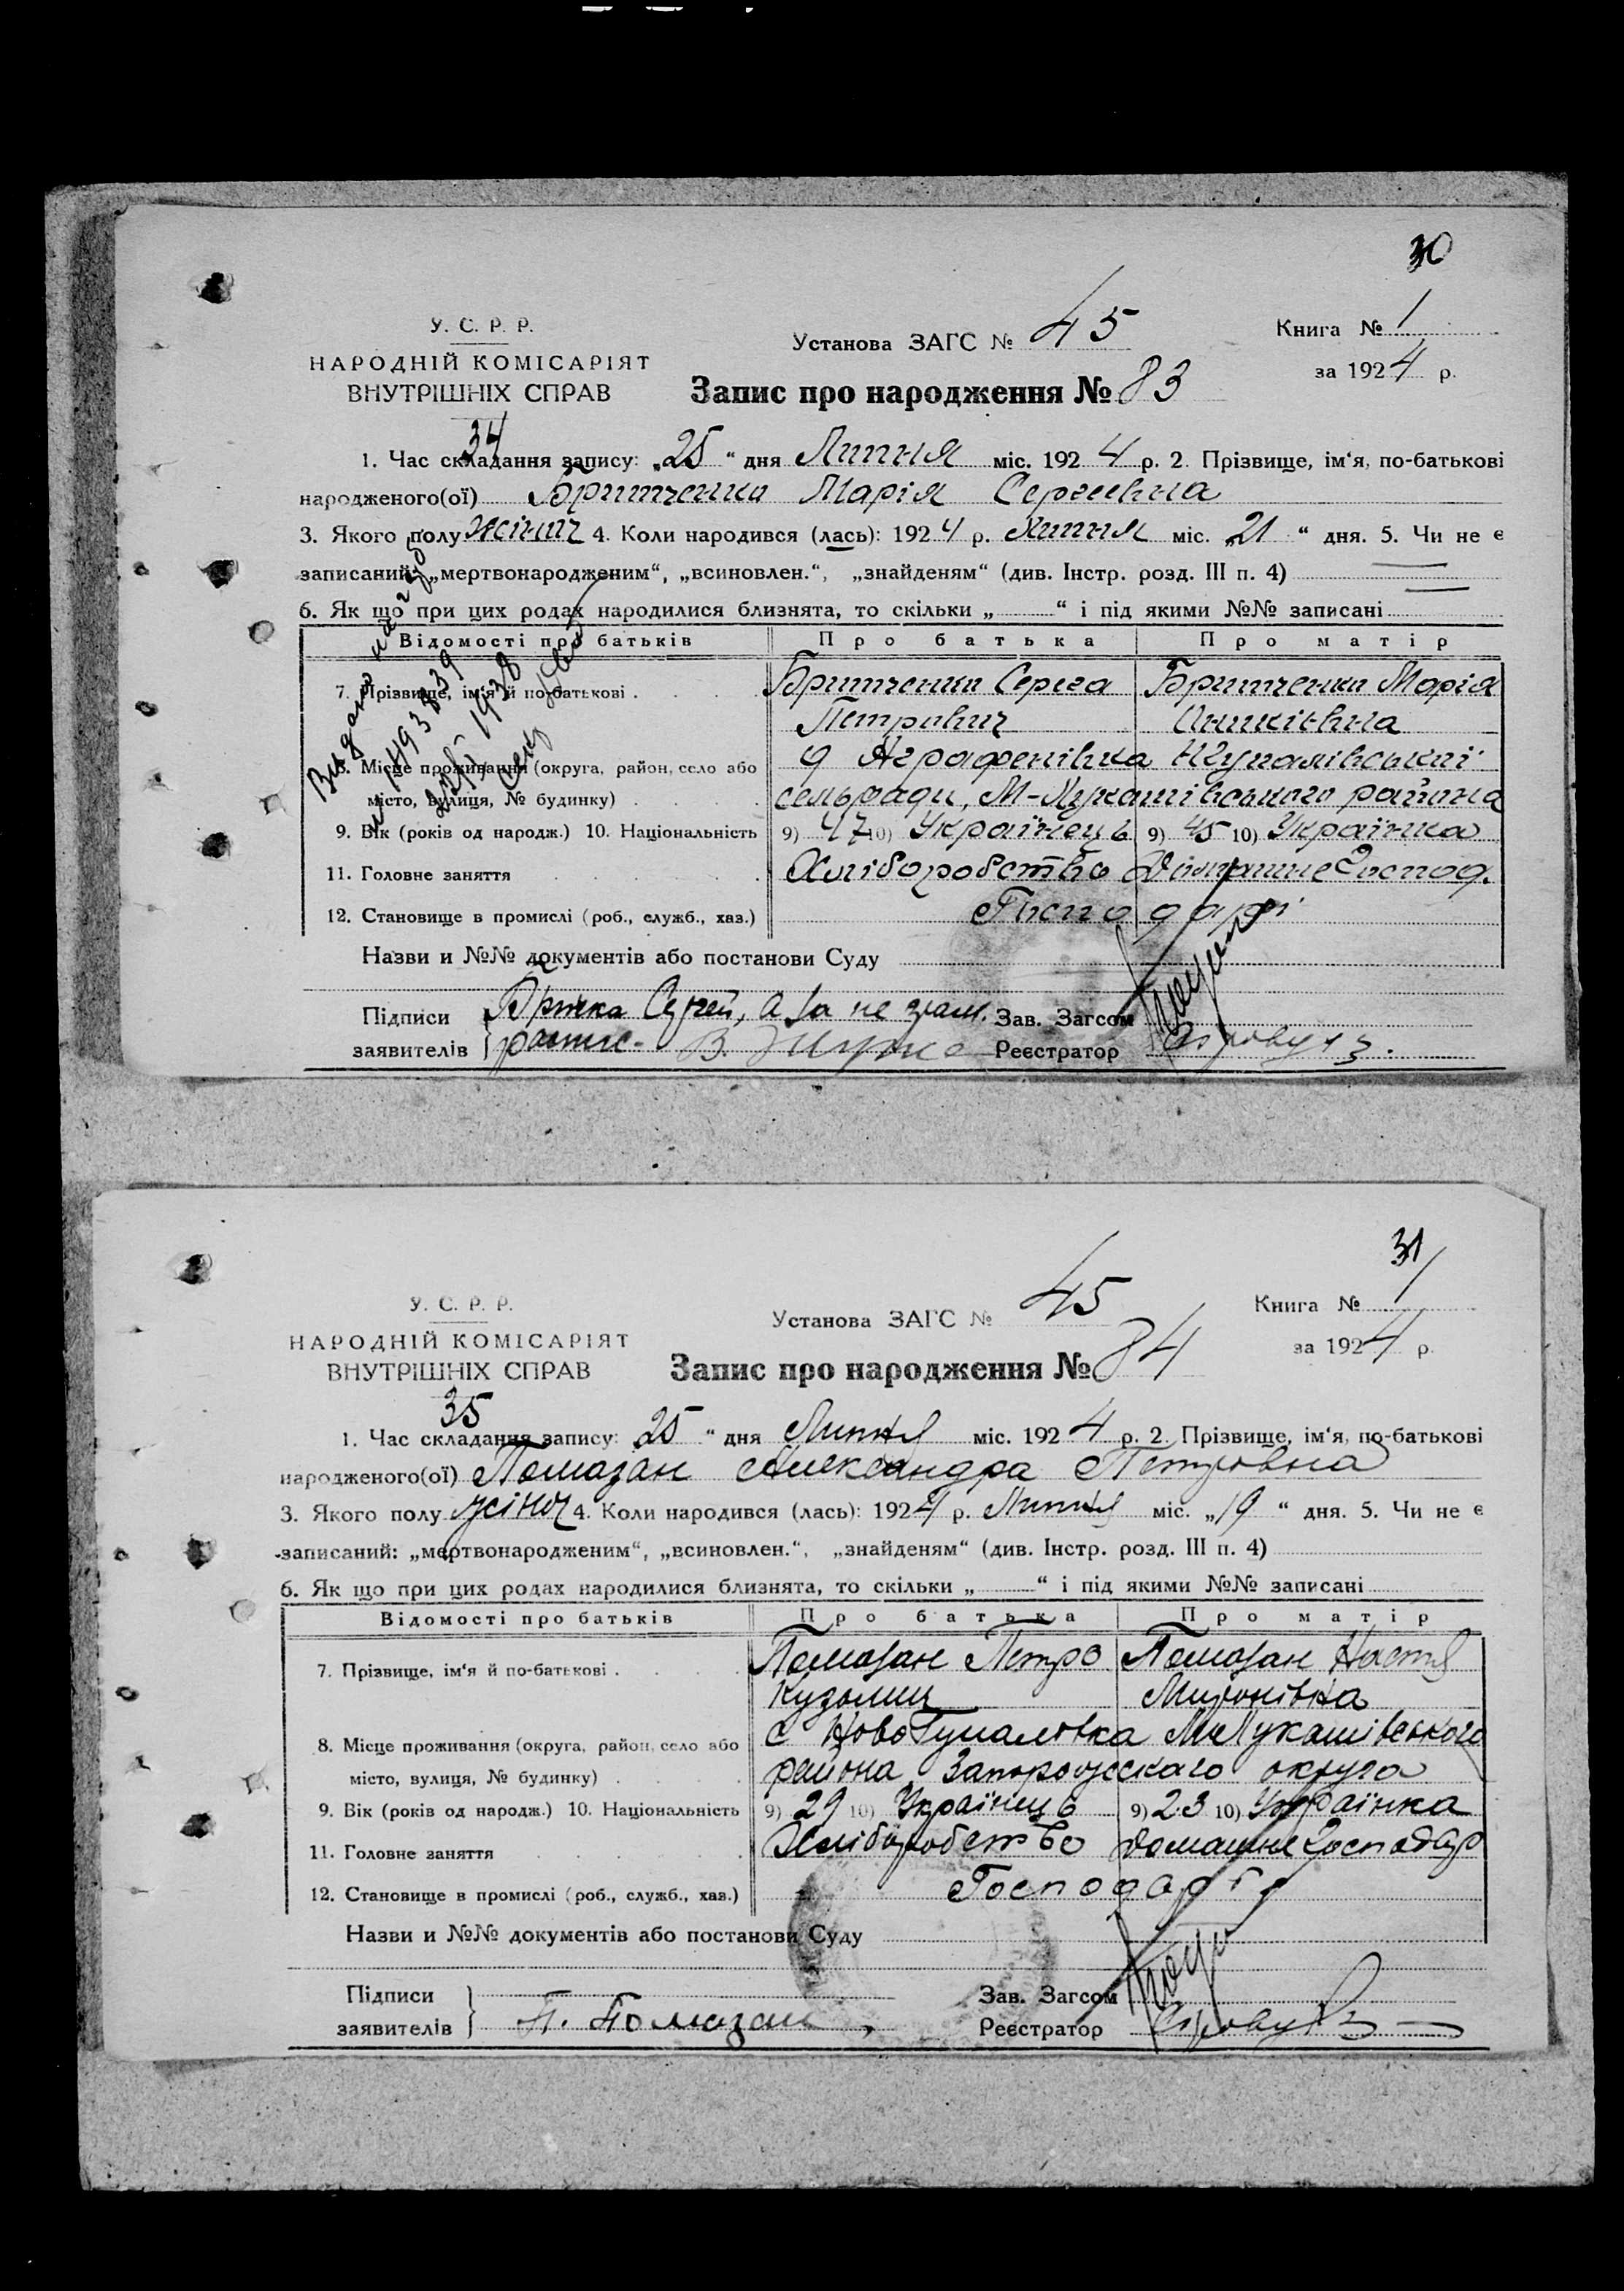 30
У. С. Р. Р.
НАРОДНІЙ КОМІСАРІЯТ
ВНУТРІШНІХ СПРАВ
Установа ЗАГС № 45
Книга № 1
за 1924 р.
Запис про народження № 83
34
1. Час складання запису: „25“ дня Липня міс. 1924 р. 2. Прізвище, ім‘я, по-батькові
народженого(ої) Бритченко Марія Сергиевна
3. Якого полу жіноч 4. Коли народився (лась): 1924 р. Липня міс. „21“ дня. 5. Чи не є
записаний: „мертвонародженим“, „всиновлен.“, „знайденям“ (див. Інстр. розд. III п. 4)
6. Як що при цих родах народилися близнята, то скільки „ “ і під якими №№ записані
Відомості про батьків Про батька Про матір
7. Прізвище, ім‘я й по-батькові . Бритченко Серега Бритченко Марія
Петрович
8. Місце проживання (округа, район, село або Аграфенівка
місто, вулиця, № будинку) . сельради, М-Лукашівського района
9. Вік (років од народж.) 10. Національність 9) 47 10) Українець 9) 45 10) Українка
11. Головне заняття Хліборобство Домашне Господ.
12. Становище в промислі (роб., служб., хаз.) Господарі
Видано
1938
Назви и №№ документів або постанови Суду
Підписи
заявителів
Сергей, а за не грам.
Зав. Загсом
Реєстратор
31
У. С. Р. Р.
НАРОДНІЙ КОМІСАРІЯТ
ВНУТРІШНІХ СПРАВ
Установа ЗАГС № 45
Книга № 1
за 1924 р.
Запис про народження № 84
35
1. Час складання запису: 25 “ дня Липня міс. 1924 р. 2. Прізвище, ім‘я, по-батькові
народженого(ої) Помазан Александра Петровна
3. Якого полу жіноч 4. Коли народився (лась): 1924 р. Липня міс. „19“ дня. 5. Чи не є
записаний: „мертвонародженим“, „всиновлен.“, „знайденям“ (див. Інстр. розд. III п. 4)
6. Як що при цих родах народилися близнята, то скільки „ “ і під якими №№ записані
Відомості про батьків Про батька Про матір
7. Прізвище, ім‘я й по-батькові . Помазан Петро Помазан Настя
Кузьмич Миронівна
8. Місце проживання (округа, район, село або с НовоГупаловка М-Лукашівського
місто, вулиця, № будинку) . района Запорожскаго округа
9. Вік (років од народж.) 10. Національність 9) 29 10) Українець 9) 23 10) Українка
11. Головне заняття Хліборобство Домашне Господар
12. Становище в промислі (роб., служб., хаз.) Господарі
Назви и №№ документів або постанови Суду
Підписи
заявителів
П. Помазан
Зав. Загсом
Реєстратор